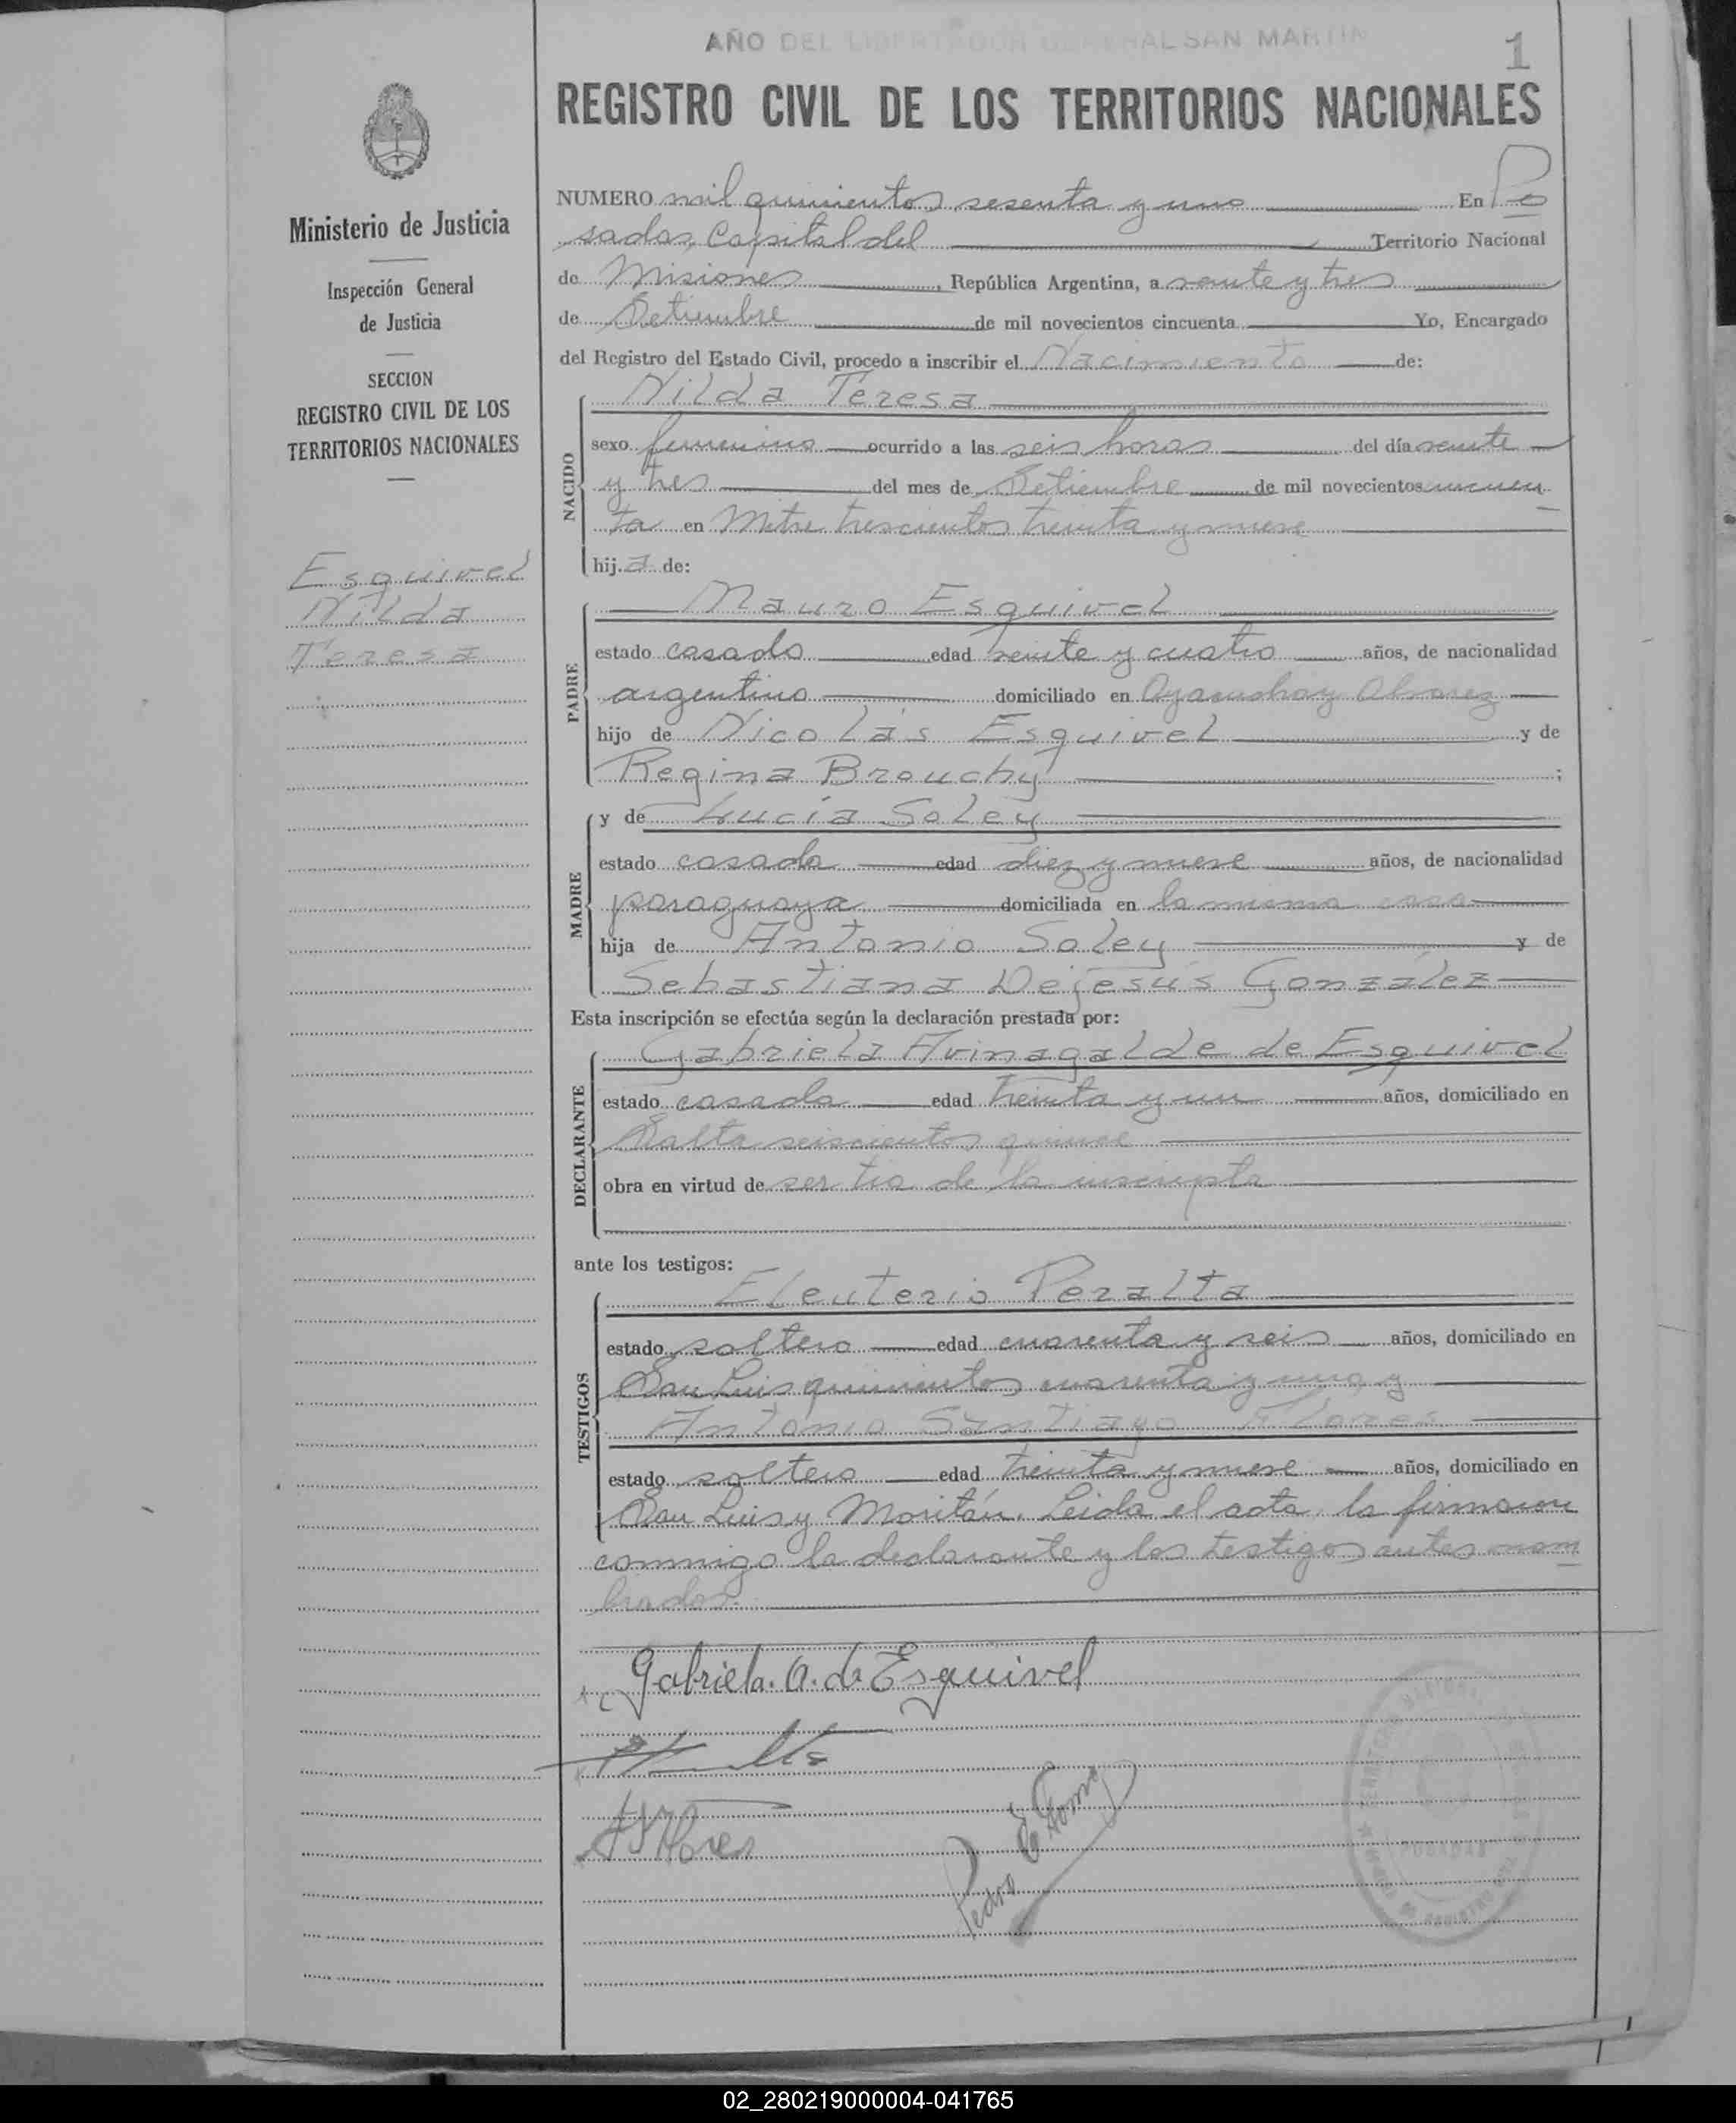 AÑO DEL LIBERTADOR GENERAL SAN MARTIN
1
REGISTRO CIVIL DE LOS TERRITORIOS NACIONALES
Ministerio de Justicia
Inspección General
de Justicia
SECCION
REGISTRO CIVIL DE LOS
TERRITORIOS NACIONALES
Esquivel
Nilda
Teresa
NUMERO mil quinientos sesenta y uno En Po
sadas, Capital del Territorio Nacional
de Misiones, República Argentina, a veinte y tres
de Setiembre de mil novecientos cincuenta Yo, Encargado
del Registro del Estado Civil, procedo a inscribir el Nacimiento de:
NACIDO
Nilda Teresa
sexo femenino ocurrido a las seis horas del día veinte
y tres del mes de Setiembre de mil novecientos cincuen
ta en Mitre trescientos treinta y nueve
hij.a de:
PADRE
Mauro Esquivel
estado casado edad veinte y cuatro años, de nacionalidad
argentino domiciliado en Ayacucho y Alvarez
hijo de Nicolás Esquivel y de
Regina Brouchy ;
MADRE
y de Lucía Soley
estado casada edad diez y nueve años, de nacionalidad
paraguaya domiciliada en la misma casa
hija de Antonio Soley y de
Sebastiana Dejesús González
Esta inscripción se efectúa según la declaración prestada por:
DECLARANTE
Gabriela Avinagalde de Esquivel
estado casada edad treinta y un años, domiciliado en
Salta seiscientos quince
obra en virtud de ser tia de la inscripta
ante los testigos:
TESTIGOS
Eleuterio Peralta
estado soltero edad cuarenta y seis años, domiciliado en
San Luis quinientos cuarenta y uno y
Antonio Santiago Flores
estado soltero edad treinta y nueve años, domiciliado en
San Luis y Moritán. Leida el acta, la firmaron
conmigo la declarante y los testigos antes nom
brados.
Gabriela. A. de Esquivel
A S Flores
Pedro E. Gomez
POSADAS
02_280219000004-041765